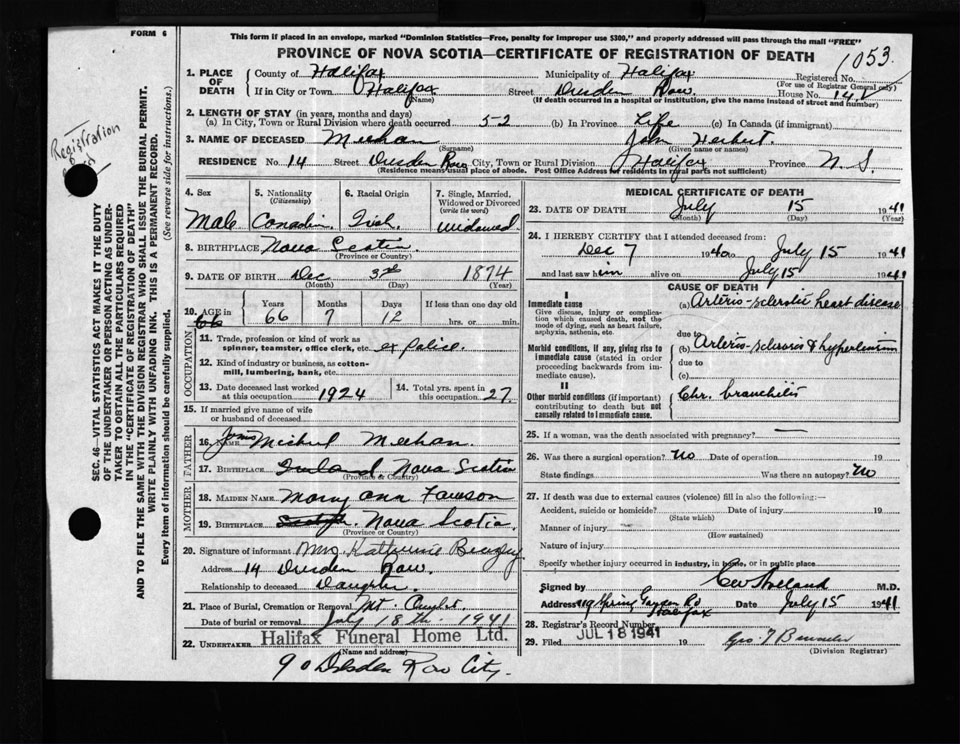 FORM 6
This form if placed in an envelope, marked "Dominion Statistics—Free, penalty for improper use $300," and properly addressed will pass through the mail "FREE"
PROVINCE OF NOVA SCOTIA—CERTIFICATE OF REGISTRATION OF DEATH
1053
1. PLACE OF DEATH
County of Halifax Municipality of Halifax Registered No.
(For use of Registrar General only)
If in City or Town Halifax (Name) Street Dresden Row House No. 14
(If death occurred in a hospital or institution, give the name instead of street and number)
2. LENGTH OF STAY (in years, months and days)
(a) In City, Town or Rural Division where death occurred 52 (b) In Province Life (c) In Canada (if immigrant)
3. NAME OF DECEASED Meehan John Herbert
(Surname) (Given name or names)
RESIDENCE No. 14 Street Dresden Row City, Town or Rural Division Halifax Province N.S.
(Residence means usual place of abode. Post Office Address for residents in rural parts not sufficient)
4. Sex 5. Nationality (Citizenship) 6. Racial Origin 7. Single, Married, Widowed or Divorced (write the word)
Male Canadin Irish Widowed
8. BIRTHPLACE Nova Scotia
(Province or Country)
9. DATE OF BIRTH Dec 3rd 1874
(Month) (Day) (Year)
10. AGE in Years Months Days If less than one day old
66 66 7 12 hrs. or min.
OCCUPATION
11. Trade, profession or kind of work as spinner, teamster, office clerk, etc. ex Police.
12. Kind of industry or business, as cotton-mill, lumbering, bank, etc.
13. Date deceased last worked at this occupation 1924 14. Total yrs. spent in this occupation 27
15. If married give name of wife or husband of deceased
FATHER
16. NAME Michael Meehan
17. BIRTHPLACE Ireland Nova Scotia
(Province or Country)
MOTHER
18. MAIDEN NAME Mary Ann Lawson
19. BIRTHPLACE Nova Scotia
(Province or Country)
20. Signature of informant Mrs. Katherine
Address 14 Dresden Row.
Relationship to deceased Daughter
21. Place of Burial, Cremation or Removal Mt.
Date of burial or removal July 18th 1941
22. UNDERTAKER Halifax Funeral Home Ltd.
(Name and address)
90 Dresden Row City.
MEDICAL CERTIFICATE OF DEATH
23. DATE OF DEATH July 15 1941
(Month) (Day) (Year)
24. I HEREBY CERTIFY that I attended deceased from:
Dec 7 1940 to July 15 1941
and last saw him alive on July 15 1941
CAUSE OF DEATH
I
Immediate cause
Give disease, injury or complication which caused death, not the mode of dying, such as heart failure, asphyxia, asthenia, etc.
(a) Arterio-sclerotic heart disease
due to
Morbid conditions, if any, giving rise to immediate cause (stated in order proceeding backwards from immediate cause).
(b) Arterio-sclerosis & hypertension
due to
(c)
II
Other morbid conditions (if important) contributing to death but not causally related to immediate cause.
Chr. bronchitis
25. If a woman, was the death associated with pregnancy?
26. Was there a surgical operation? No Date of operation 19
State findings Was there an autopsy? No
27. If death was due to external causes (violence) fill in also the following:—
Accident, suicide or homicide? Date of injury 19
(State which)
Manner of injury
(How sustained)
Nature of injury
Specify whether injury occurred in industry, in home, or in public place
Signed by M.D.
Address 119 Spring Garden Rd Halifax Date July 15 1941
28. Registrar's Record Number
29. Filed JUL 18 1941 19
(Division Registrar)
SEC. 46—VITAL STATISTICS ACT MAKES IT THE DUTY OF THE UNDERTAKER OR PERSON ACTING AS UNDERTAKER TO OBTAIN ALL THE PARTICULARS REQUIRED IN THE "CERTIFICATE OF REGISTRATION OF DEATH"
AND TO FILE THE SAME WITH THE DIVISION REGISTRAR WHO SHALL ISSUE THE BURIAL PERMIT.
WRITE PLAINLY WITH UNFADING INK. THIS IS A PERMANENT RECORD.
Every item of information should be carefully supplied. (See reverse side for instructions.)
Registration